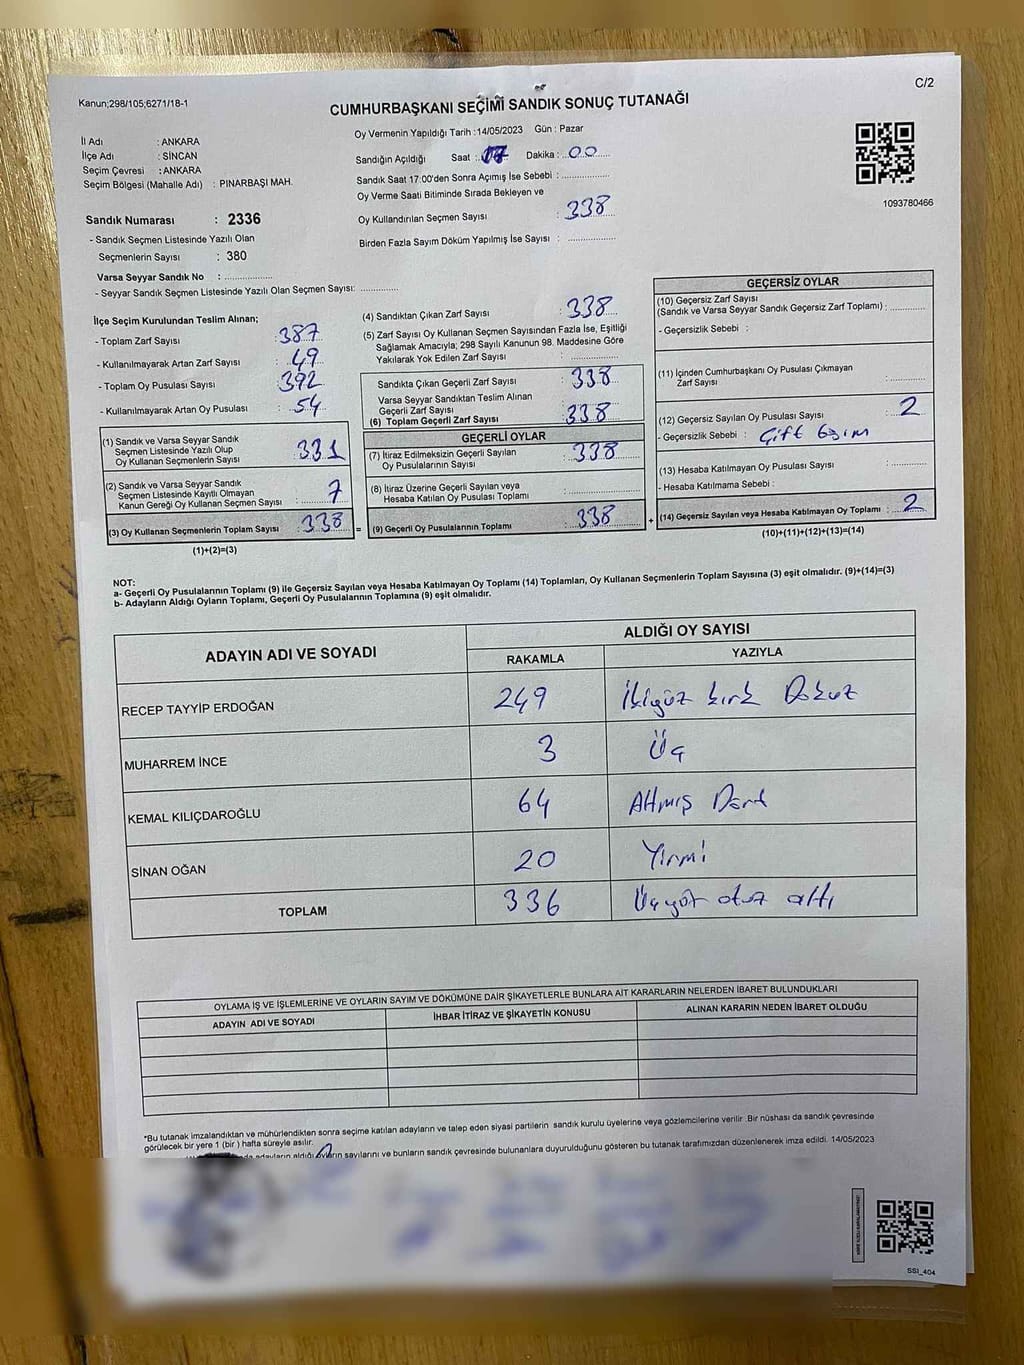 C/2
Kanun;298/105;6271/18-1
CUMHURBAŞKANI SEÇİMİ SANDIK SONUÇ TUTANAĞI
İl Adı : ANKARA
İlçe Adı : SİNCAN
Seçim Çevresi : ANKARA
Seçim Bölgesi (Mahalle Adı) : PINARBAŞI MAH.
Oy Vermenin Yapıldığı Tarih :14/05/2023 Gün : Pazar
Sandığın Açıldığı Saat : 17 Dakika : 00
Sandık Saat 17:00'den Sonra Açımış İse Sebebi :
Oy Verme Saati Bitiminde Sırada Bekleyen ve
Oy Kullandırılan Seçmen Sayısı : 338
Birden Fazla Sayım Döküm Yapılmış İse Sayısı :
1093780466
Sandık Numarası : 2336
- Sandık Seçmen Listesinde Yazılı Olan
Seçmenlerin Sayısı : 380
Varsa Seyyar Sandık No :
- Seyyar Sandık Seçmen Listesinde Yazılı Olan Seçmen Sayısı:
İlçe Seçim Kurulundan Teslim Alınan;
- Toplam Zarf Sayısı : 387
- Kullanılmayarak Artan Zarf Sayısı : 49
- Toplam Oy Pusulası Sayısı : 392
- Kullanılmayarak Artan Oy Pusulası : 54
(1) Sandık ve Varsa Seyyar Sandık
Seçmen Listesinde Yazılı Olup
Oy Kullanan Seçmenlerin Sayısı : 331
(2) Sandık ve Varsa Seyyar Sandık
Seçmen Listesinde Kayıtlı Olmayan
Kanun Gereği Oy Kullanan Seçmen Sayısı : 7
(3) Oy Kullanan Seçmenlerin Toplam Sayısı : 338
(1)+(2)=(3)
(4) Sandıktan Çıkan Zarf Sayısı : 338
(5) Zarf Sayısı Oy Kullanan Seçmen Sayısından Fazla İse, Eşitliği
Sağlamak Amacıyla; 298 Sayılı Kanunun 98. Maddesine Göre
Yakılarak Yok Edilen Zarf Sayısı :
Sandıkta Çıkan Geçerli Zarf Sayısı : 338
Varsa Seyyar Sandıktan Teslim Alınan
Geçerli Zarf Sayısı :
(6) Toplam Geçerli Zarf Sayısı : 338
GEÇERLİ OYLAR
(7) İtiraz Edilmeksizin Geçerli Sayılan
Oy Pusulalarının Sayısı : 338
(8) İtiraz Üzerine Geçerli Sayılan veya
Hesaba Katılan Oy Pusulası Toplamı :
= (9) Geçerli Oy Pusulalarının Toplamı : 338 +
GEÇERSİZ OYLAR
(10) Geçersiz Zarf Sayısı
(Sandık ve Varsa Seyyar Sandık Geçersiz Zarf Toplamı) :
- Geçersizlik Sebebi :
(11) İçinden Cumhurbaşkanı Oy Pusulası Çıkmayan
Zarf Sayısı :
(12) Geçersiz Sayılan Oy Pusulası Sayısı : 2
- Geçersizlik Sebebi : Çift Basım
(13) Hesaba Katılmayan Oy Pusulası Sayısı :
- Hesaba Katılmama Sebebi :
(14) Geçersiz Sayılan veya Hesaba Katılmayan Oy Toplamı : 2
(10)+(11)+(12)+(13)=(14)
NOT:
a- Geçerli Oy Pusulalarının Toplamı (9) ile Geçersiz Sayılan veya Hesaba Katılmayan Oy Toplamı (14) Toplamları, Oy Kullanan Seçmenlerin Toplam Sayısına (3) eşit olmalıdır. (9)+(14)=(3)
b- Adayların Aldığı Oyların Toplamı, Geçerli Oy Pusulalarının Toplamına (9) eşit olmalıdır.
ADAYIN ADI VE SOYADI ALDIĞI OY SAYISI
RAKAMLA YAZIYLA
RECEP TAYYİP ERDOĞAN 249 İkiyüz kırk Dokuz
MUHARREM İNCE 3 Üç
KEMAL KILIÇDAROĞLU 64 Altmış Dört
SİNAN OĞAN 20 Yirmi
TOPLAM 336 Üçyüz otuz altı
OYLAMA İŞ VE İŞLEMLERİNE VE OYLARIN SAYIM VE DÖKÜMÜNE DAİR ŞİKAYETLERLE BUNLARA AİT KARARLARIN NELERDEN İBARET BULUNDUKLARI
ADAYIN ADI VE SOYADI İHBAR İTİRAZ VE ŞİKAYETİN KONUSU ALINAN KARARIN NEDEN İBARET OLDUĞU
*Bu tutanak imzalandıktan ve mühürlendikten sonra seçime katılan adayların ve talep eden siyasi partilerin sandık kurulu üyelerine veya gözlemcilerine verilir. Bir nüshası da sandık çevresinde
görülecek bir yere 1 (bir ) hafta süreyle asılır.
adayların aldığı oyların sayılarını ve bunların sandık çevresinde bulunanlara duyurulduğunu gösteren bu tutanak tarafımızdan düzenlenerek imza edildi. 14/05/2023
SSI_404